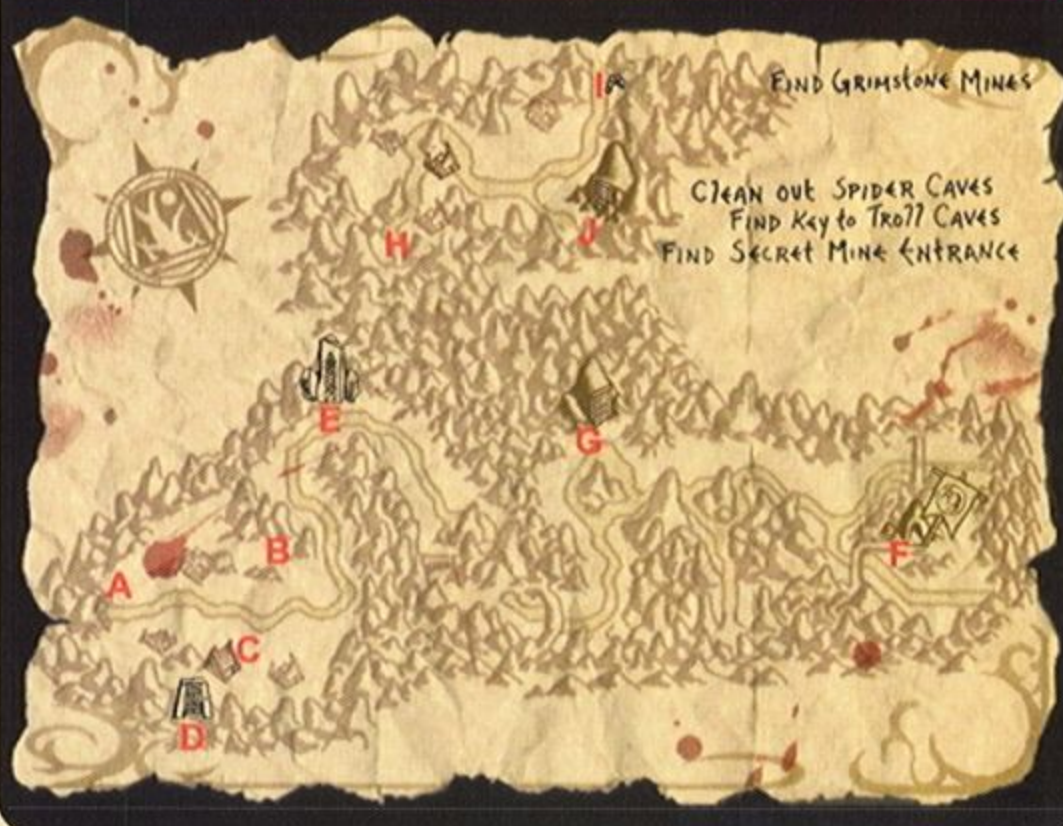 I
FIND GRIMSTONE MINES
CLEAN OUT SPIDER CAVES
FIND KEY TO TROLL CAVES
FIND SECRET MINE ENTRANCE
H
J
E
G
B
F
A
C
D